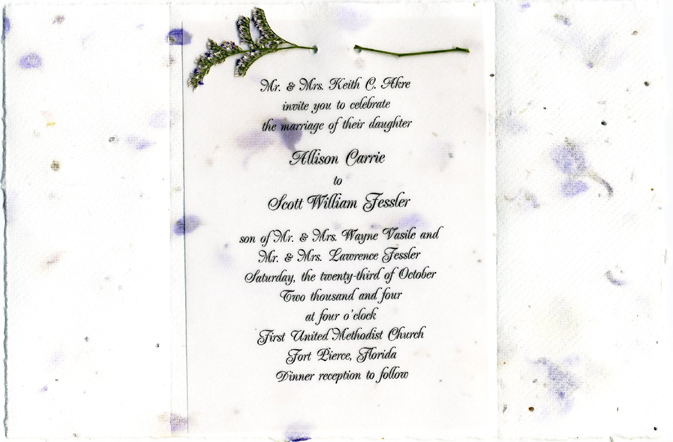 Mr. & Mrs. Keith C. Akre
invite you to celebrate
the marriage of their daughter
Allison Carrie
to
Scott William Fessler
son of Mr. & Mrs. Wayne Vasile and
Mr. & Mrs. Lawrence Fessler
Saturday, the twenty-third of October
Two thousand and four
at four o'clock
First United Methodist Church
Fort Pierce, Florida
Dinner reception to follow